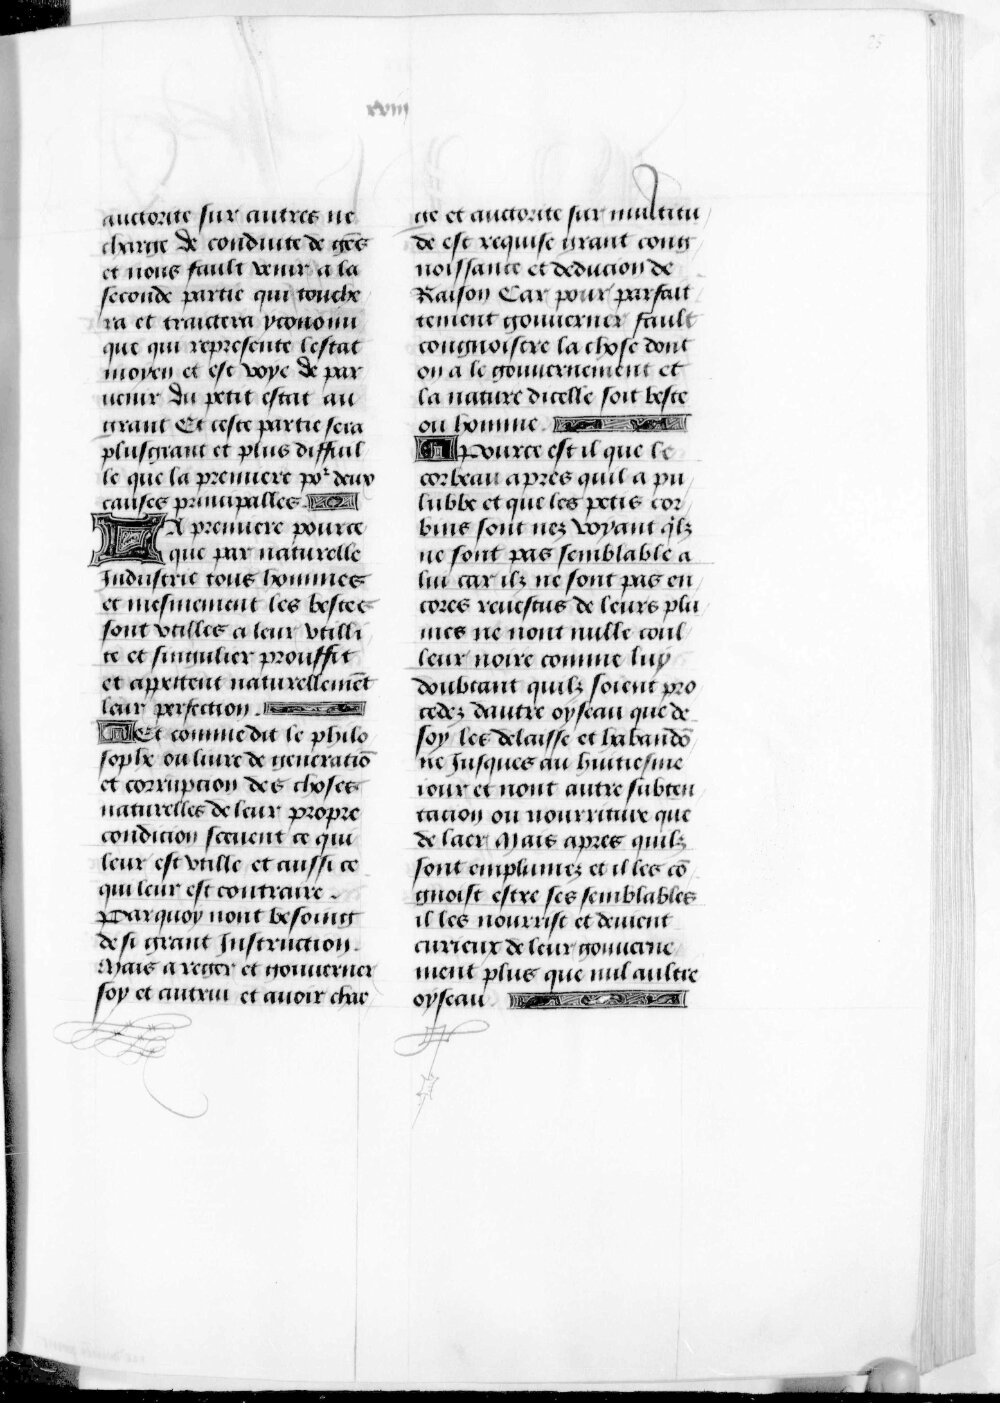 25
xviii
auctorite sur autres ne
charge de conduite de gẽs
et nous fault venir a la
seconde partie qui touche
ra et traictera yconomi
que qui represente lestat
moyen et est voye de par
uenir du petit estat au
grant Et ceste partie sera
plusgrant et plus difficil
le que la premiere poʳ deux
causes principalles.
LA premiere pource
que par naturelle
Industrie tous hommes
et mesmement les bestes
sont vtilles a leur vtilli
te et singulier prouffit
et apettent naturellemẽt
leur perfection.
Et comme dit le philo
sophe ou liure de generatiõ
et corrupcion des choses
naturelles de leur propre
condicion sceuent ce qui
leur est vtille et aussi ce
qui leur est contraire.
Parquoy nont besoing
de si grant Instruction.
Mais a reger et gouuerner
soy et autrui et auoir char
ge et auctorite sur multitu
de est requise grant cong
noissance et deducion de
Raison Car pour parfait
tement gouuerner fault
congnoistre la chose dont
on a le gouuernement et
la nature dicelle soit beste
ou homme.
Pource est il que le
corbeau apres quil a pu
lubbe et que les petis cor
bins sont nez voyant q̃lz
ne sont pas semblable a
lui car ilz ne sont pas en
cores reuestus de leurs plu
mes ne nont nulle coul
leur noire comme luy
doubtant quilz soient pro
cedez dautre oyseau que de
soy les delaisse et habandõ
ne Jusques au huitiesme
iour et nont autre subten
tacion ou nourriture que
de laer Mais apres quilz
sont emplumez et il les cõ
gnoist estre ses semblables
il les nourrist et deuient
curieux de leur gouuerne
ment plus que nul aultre
oyseau.